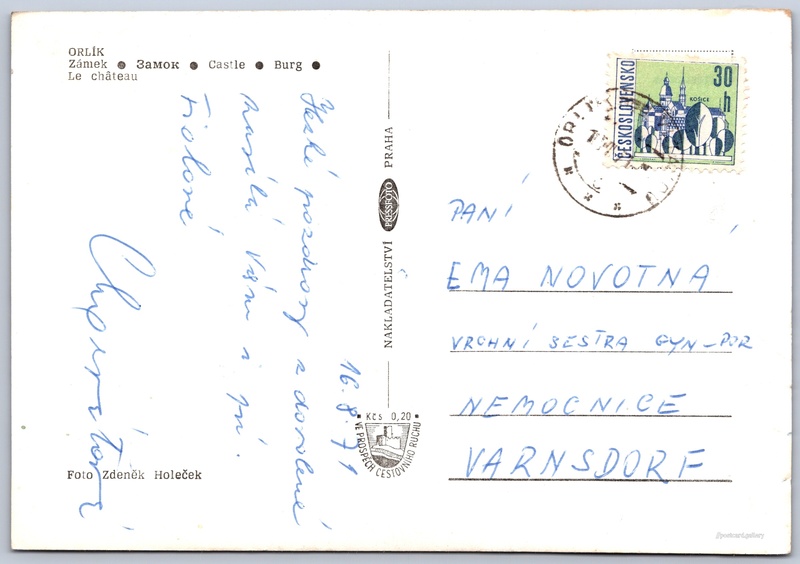 ORLÍK
Zámek ● Замок ● Castle ● Burg ●
Le château
Hezké pozdravy z dovolené
Vám i pí.
16.8.71
Foto Zdeněk Holeček
NAKLADATELSTVÍ PRESSFOTO PRAHA
Kčs 0,20
VE PROSPĚCH CESTOVNÍHO RUCHU
ČESKOSLOVENSKO
30 h
KOŠICE
PANÍ
EMA NOVOTNA
VRCHNÍ SESTRA GYN-POR
NEMOCNICE
VARNSDORF